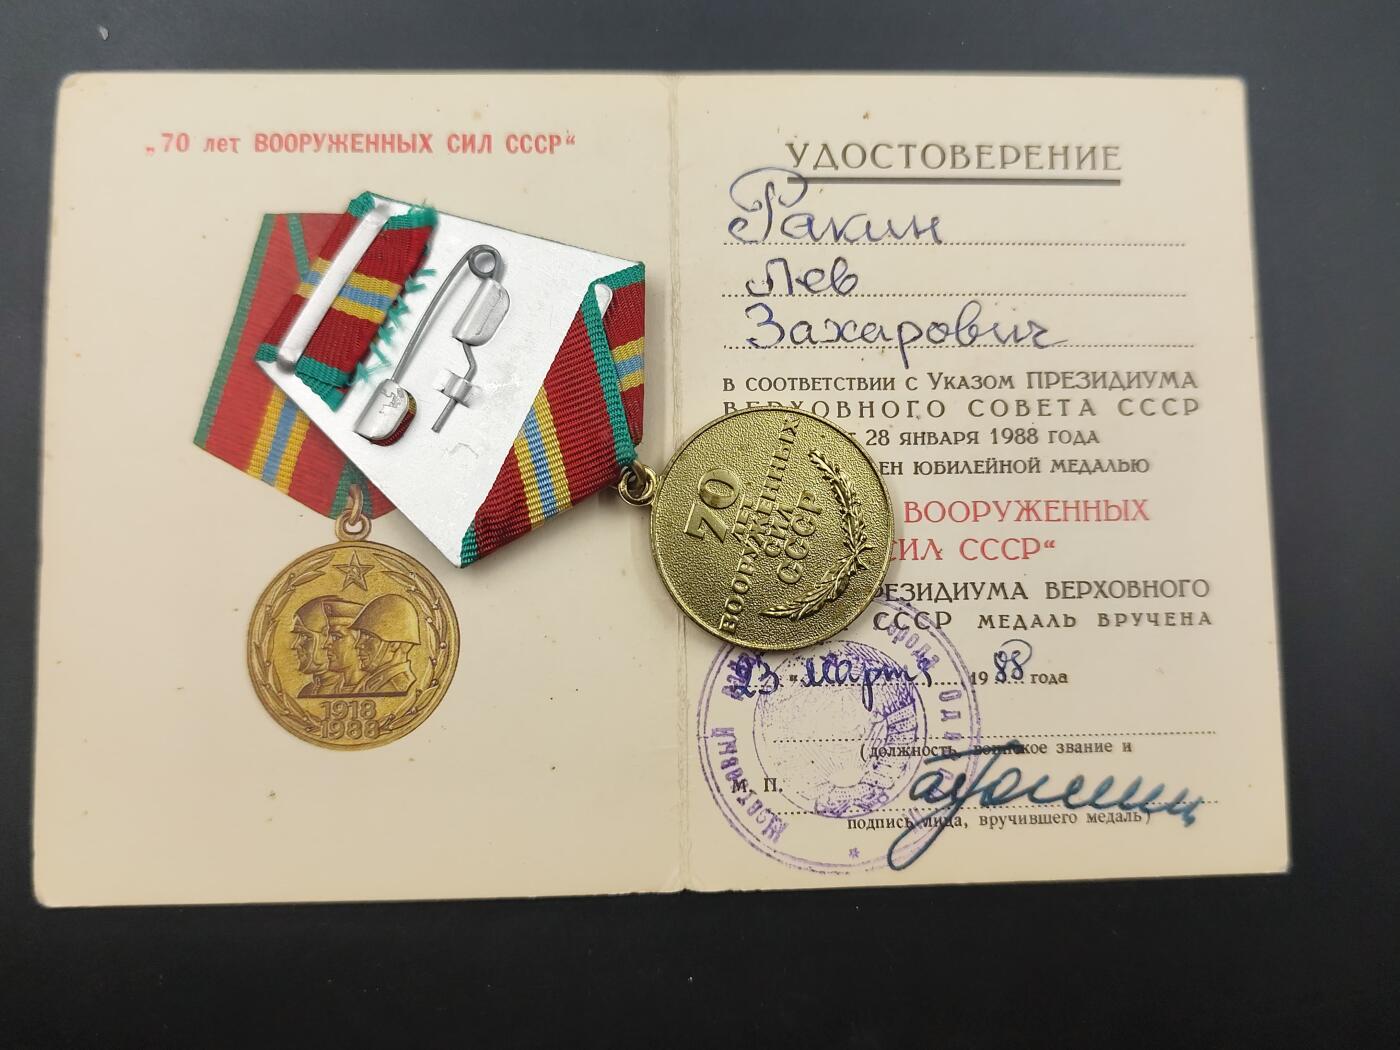 „70 лет ВООРУЖЕННЫХ СИЛ СССР“
1918
1988
70
ЛЕТ
ВООРУЖЕННЫХ
СИЛ
СССР
УДОСТОВЕРЕНИЕ
Ракин
Лев
Захарович
В СООТВЕТСТВИИ С УКАЗОМ ПРЕЗИДИУМА
ВЕРХОВНОГО СОВЕТА СССР
28 ЯНВАРЯ 1988 ГОДА
ЕН ЮБИЛЕЙНОЙ МЕДАЛЬЮ
ВООРУЖЕННЫХ
СИЛ СССР“
РЕЗИДИУМА ВЕРХОВНОГО
СССР МЕДАЛЬ ВРУЧЕНА
23 „ марта 1988 года
(должность, воинское звание и
М. П.
подпись лица, вручившего медаль)
города